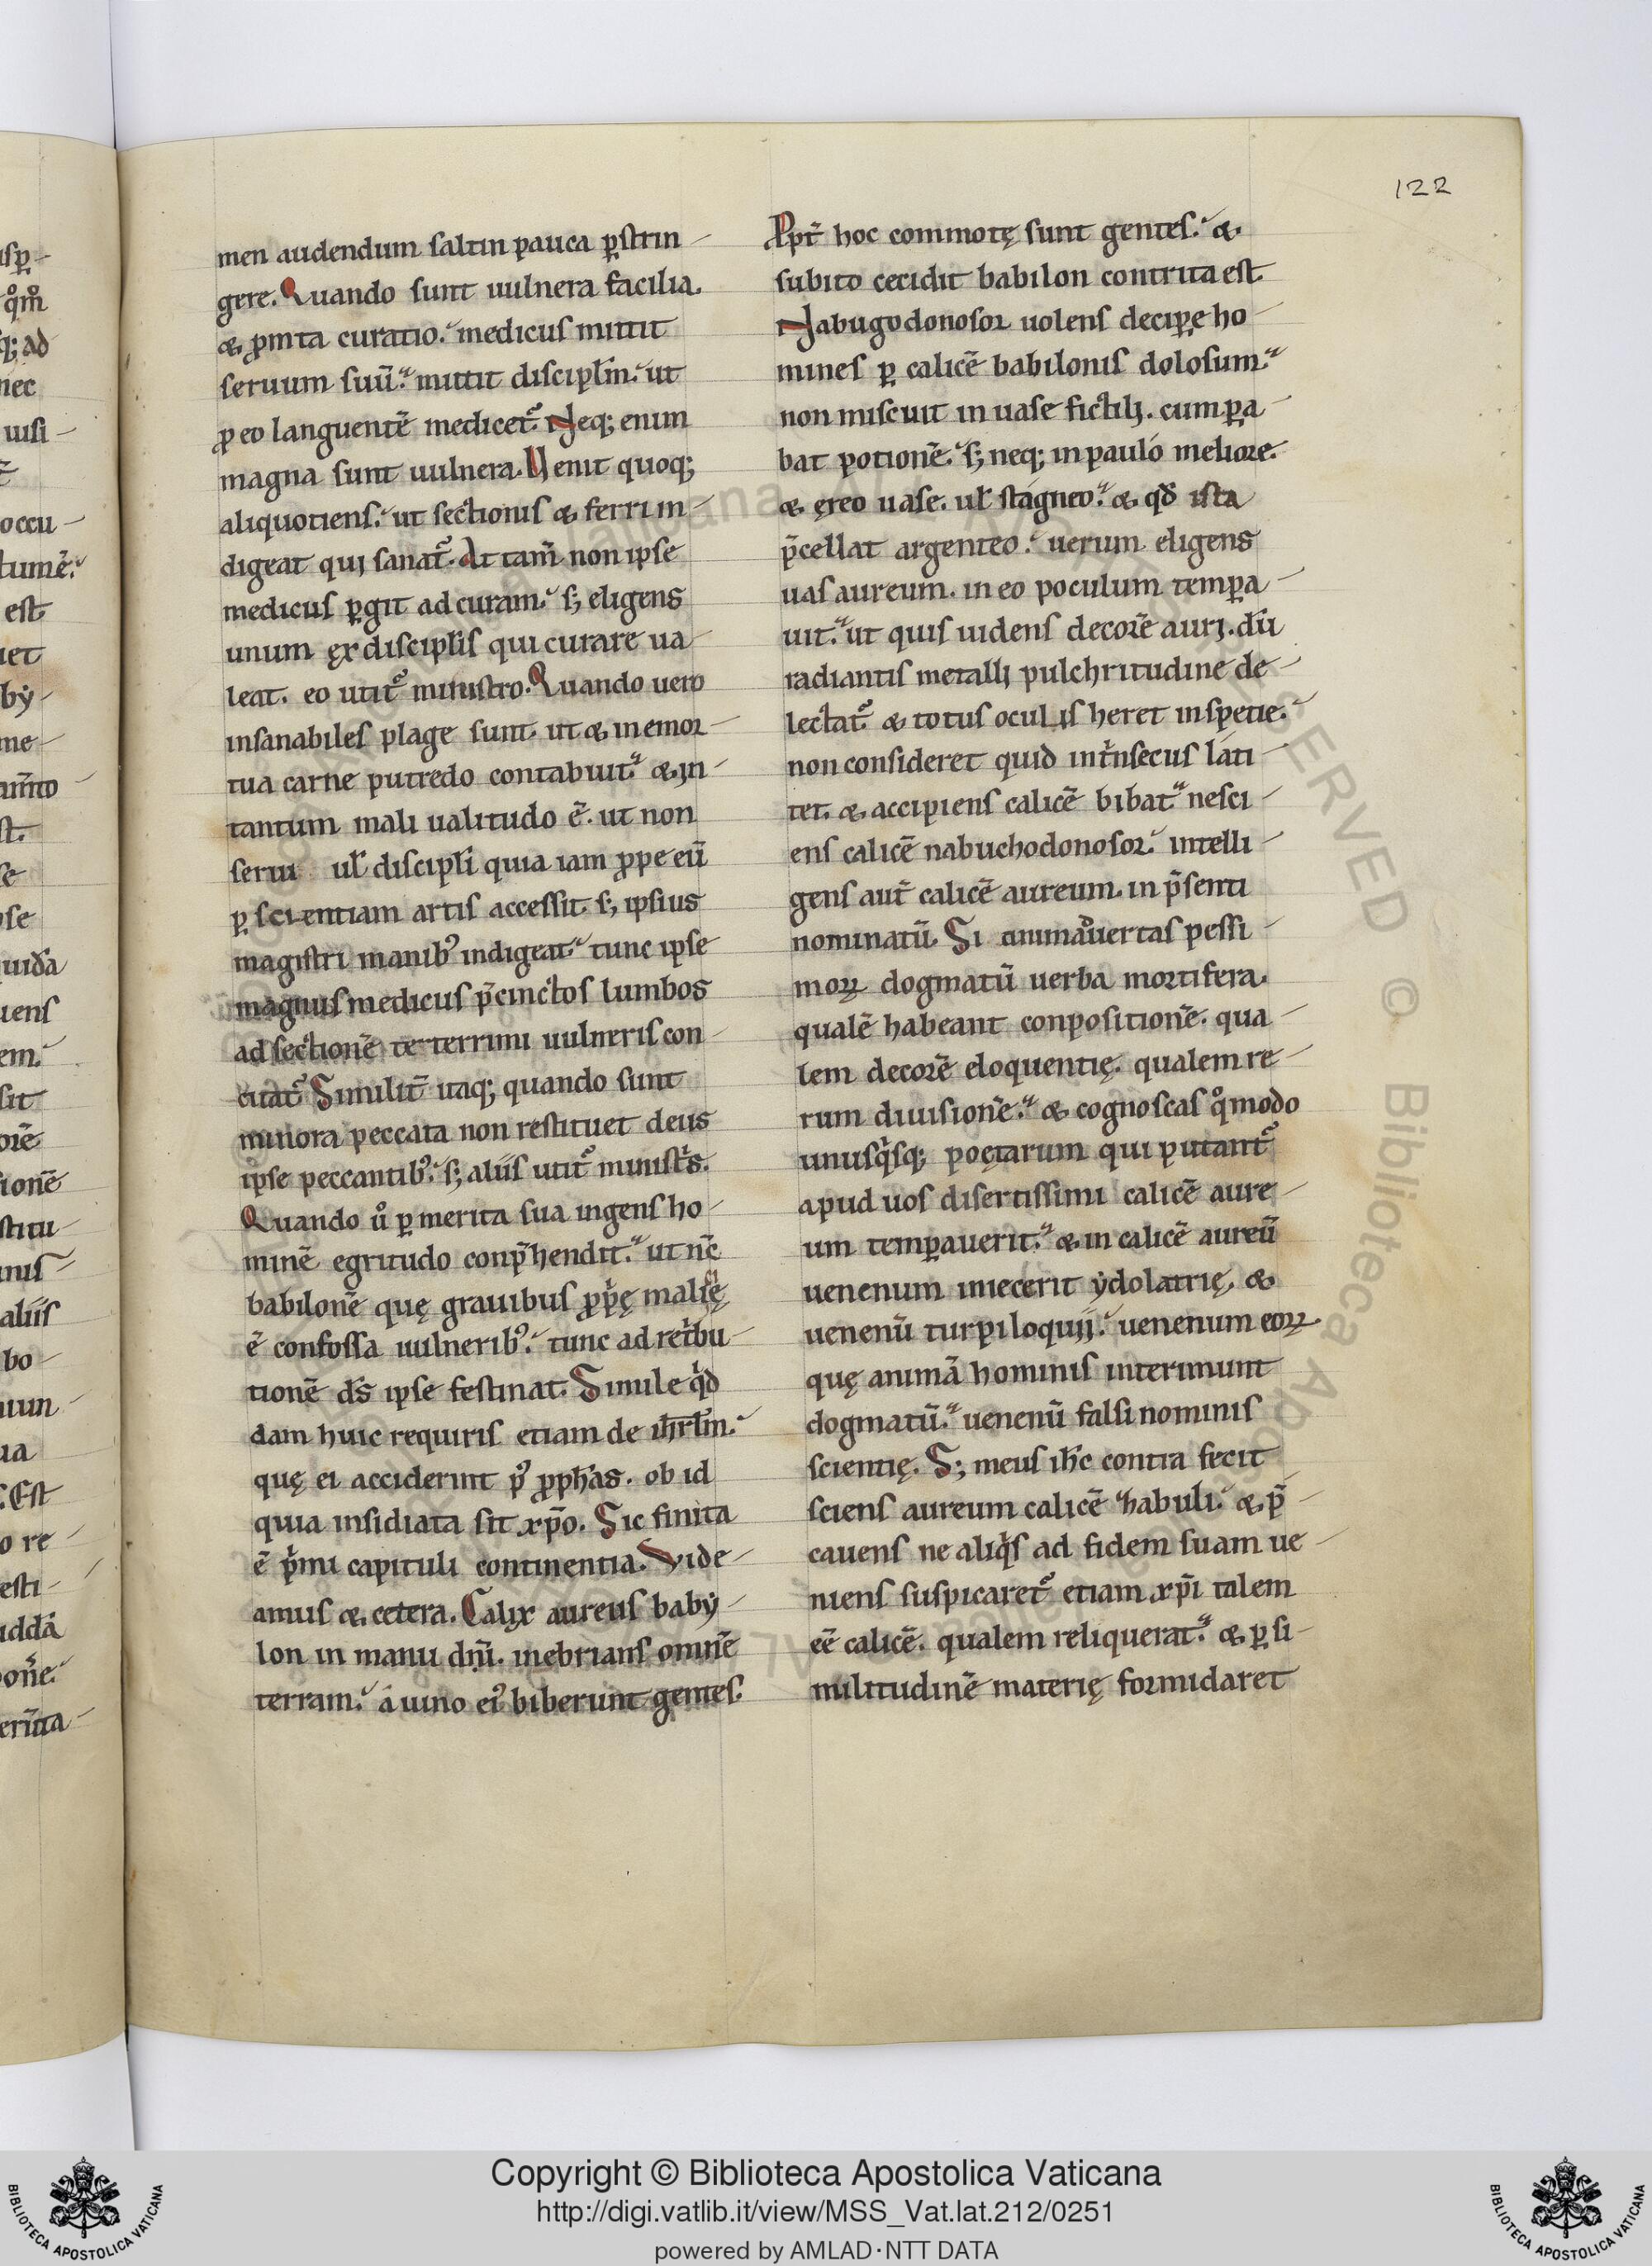 122
men audendum saltin pauca p̱strin-
gere. Quando sunt uulnera facilia.
& p̱mta curatio. medicus mittit
seruum suū. mittit discipl̄m. ut
ꝓ eo languentē medicet᷑. Neq; enim
magna sunt uulnera. Uenit quoq;
aliquotiens. ut sectionis & ferri in-
digeat qui sanat᷑. At tam̄ non ipse
medicus ꝑgit ad curam. s; eligens
unum ęx discipl̄is qui curare ua-
leat. eo utit᷑ ministro. Quando uero
insanabiles plage sunt. ut & in emor-
tua carne putredo contabuit. & in-
tantum mali ualitudo ē. ut non
serui ul̄ discipl̄i quia iam ꝓpe eū
ꝑ scientiam artis accessit. s; ipsius
magistri manib᷒ indigeat. tunc ipse
magnus medicus p̄cinctos lumbos
ad sectionē teterrimi uulneris con-
citat᷑. Similit̄ itaq; quando sunt
minora peccata non restituet deus
ipse peccantib᷒. s; aliis utit᷑ minist̍s.
Quando u̇̊ ꝑ merita sua ingens ho-
minē egritudo conp̄hendit. ut nc̄
babilonē quę grauibus
ē confossa uulnerib᷒. tunc ad ret̍bu-
tionē ds̄ ipse festinat. Simile q̍d-
dam huic requiris etiam de ih̄rl̄m.
quę ei acciderint p᷒ ꝓph̄as. ob id
quia insidiata sit xp̄o. Sic finita
ē p̍mi capituli continentia. Vide-
amus & cetera. Calix aureus baby-
lon in manu dn̄i. inebrians omnē
terram. á uino ei᷒ biberunt gentes.
Ppt̄ hoc commotę sunt gentes. &
subito cecidit babilon contrita est.
Nabugodonosor uolens deciꝑe ho-
mines ꝑ calicē babilonis dolosum.
non miscuit in uase fictili. cum ꝑa-
bat potionē. s; neq; in pauló meliore.
& ęreo uase. ul̄ stágneo. & qd̄ ista
p̄cellat argenteo. uerum eligens
uas aureum. in eo poculum temꝑa-
uit. ut quis uidens decorē auri. dū
radiantis metalli pulchritudine de-
lectat᷑ & totus oculis heret in spetie.
non consideret quid int̍nsecus láti-
tet. & accipiens calicē bibat. nesci-
ens calicē nabuchodonosor. intelli-
gens aut̄ calicē aureum. in p̄senti
nominatū. Si animaduertas pessi-
moꝝ dogmatū uerba mortifera.
qualē habeant conpositionē. qua-
lem decorē eloquentię. qualem re-
rum diuisionē. & cognoscas q̊modo
unusq̍sq; poętarum qui putant᷑
apud uos disertissimi calicē aure-
um temꝑauerit. & in calicē aureū
uenenum iniecerit ẏdolatrię. &
uenenū turpiloquii. uenenum eoꝝ
quę animā hominis interimunt
dogmatū. uenenū falsi nominis
scientię. S; meus ih̄c contra fecit
sciens aureum calicē habuli. & p̄-
cauens ne aliq̍s ad fidem suam ue-
niens suspicaret᷑ etiam xp̄i talem
eē calicē. qualem reliquerat. & ꝑ si-
militudinē materię formidaret
Copyright © Biblioteca Apostolica Vaticana
http://digi.vatlib.it/view/MSS_Vat.lat.212/0251
powered by AMLAD·NTT DATA
BIBLIOTECA APOSTOLICA VATICANA
BIBLIOTECA APOSTOLICA VATICANA